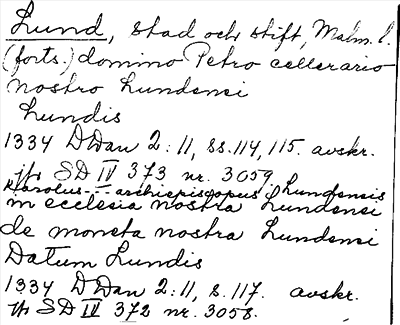 Lund, stad och stift, Malm. l.
(forts.) domino Petro cellerario
nostro Lundensi
Lundis
1334 DDan 2:11, ss. 114, 115. avskr.
jfr SD IV 373 nr. 3059
Karolus -- archiepiscopus Lundensis
in ecclesia nostra Lundensi
de moneta nostra Lundensi
Datum Lundis
1334 DDan 2:11, s. 117. avskr.
jfr SD IV 372 nr. 3058.